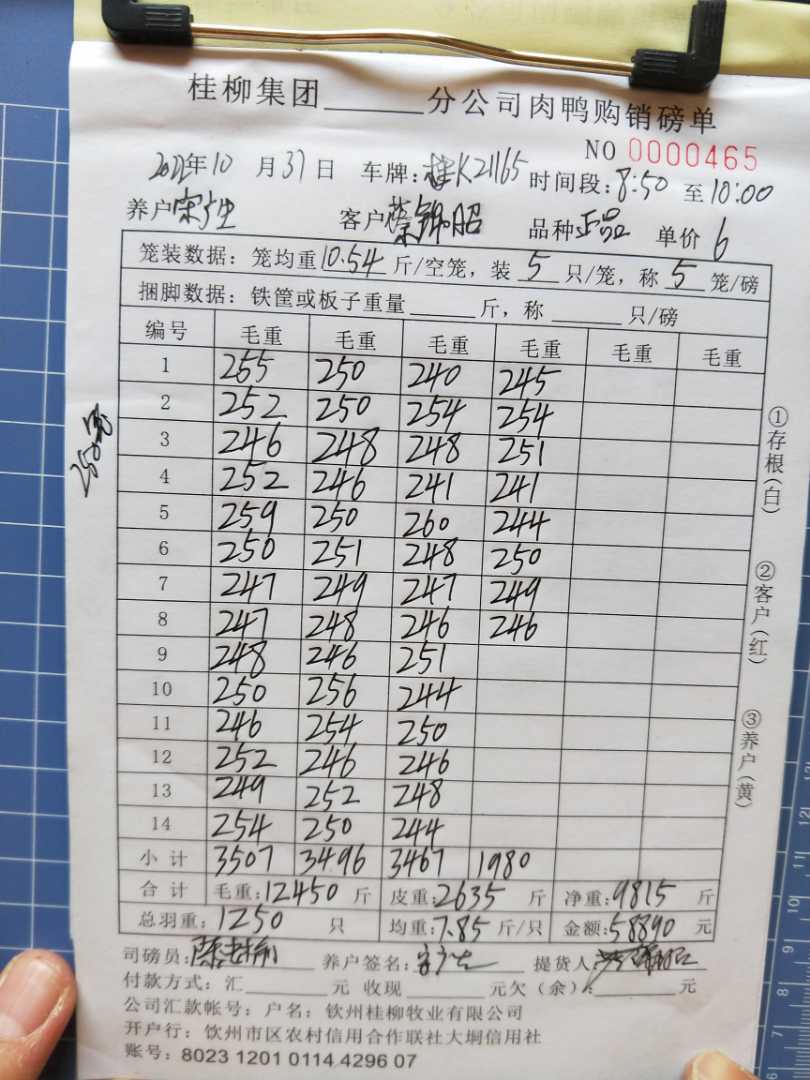 桂柳集团______分公司肉鸭购销磅单
NO 0000465
2022年10月31日 车牌:桂K21165 时间段:8:50至10:00
养户宋广生 客户蔡锦昭 品种正品 单价6
笼装数据:笼均重10.54斤/空笼,装5只/笼,称5笼/磅
捆脚数据:铁筐或板子重量______斤,称______只/磅
编号 毛重 毛重 毛重 毛重 毛重 毛重
1 255 250 240 245
2 252 250 254 254
3 246 248 248 251
4 252 246 241 241
5 259 250 260 244
6 250 251 248 250
7 247 249 247 249
8 247 248 246 246
9 248 246 251
10 250 256 244
11 246 254 250
12 252 246 246
13 249 252 248
14 254 250 244
小计 3507 3496 3467 1980
合计 毛重:12450斤 皮重:2635斤 净重:9815斤
总羽重:1250只 均重:7.85斤/只 金额:58890元
司磅员: 养户签名: 提货人
付款方式:汇______元 收现______元欠(余):______元
公司汇款帐号:户名:钦州桂柳牧业有限公司
开户行:钦州市区农村信用合作联社大垌信用社
账号:8023 1201 0114 4296 07
①存根(白)
②客户(红)
③养户(黄)
250